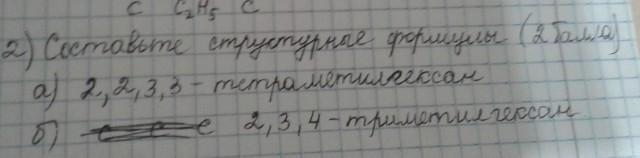 C C₂H₅ C
2) Составьте структурные формулы (2 балла)
а) 2,2,3,3-тетраметилгексан
б) 2,3,4-триметилгексан